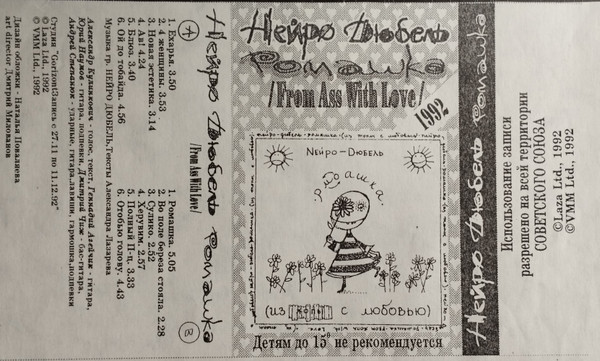 Нейро Дюбель
Ромашка
/From Ass With Love/
1992
Nейро-Dюбель
ромашка.
(из жопы с любовью)
Детям до 15° не рекомендуется
Нейро Дюбель Ромашка
Использование записи
разрешено на всей территории
СОВЕТСКОГО СОЮЗА
©Laza Ltd., 1992
©VMM Ltd., 1992
Нейро Дюбель Ромашка
/From Ass With Love/
A
1. Ехарья. 3.50
2. 4 женщины. 3.53
3. Новая эстетика. 3.14
4. Ав! 4.21
5. Блюз. 3.40
6. Ой до тобайда. 4.56
B
1. Ромашка. 5.05
2. Во поле береза стояла. 2.28
3. Сулико. 2.52
4. Херувим. 2.57
5. Полный П-ц. 3.33
6. Отобью голову. 4.43
Музыка гр. НЕЙРО ДЮБЕЛЬ, Тексты Александра Лазарева
Александр Куллинкович - голос, текст, Геннадий Агейчик - гитара,
Юрий Наумов - гитара, подпевки, Дмитрий Чиж - бас-гитара,
Андрей Степанюк - ударные, гитара, клавиши, гармошка, подпевки
Студия "Gorizont" Запись с 27.11 по 11.12.92"
©Laza Ltd., 1992
©VMM Ltd., 1992
Дизайн обложки - Наталья Поваляева
art director Дмитрий Милованов